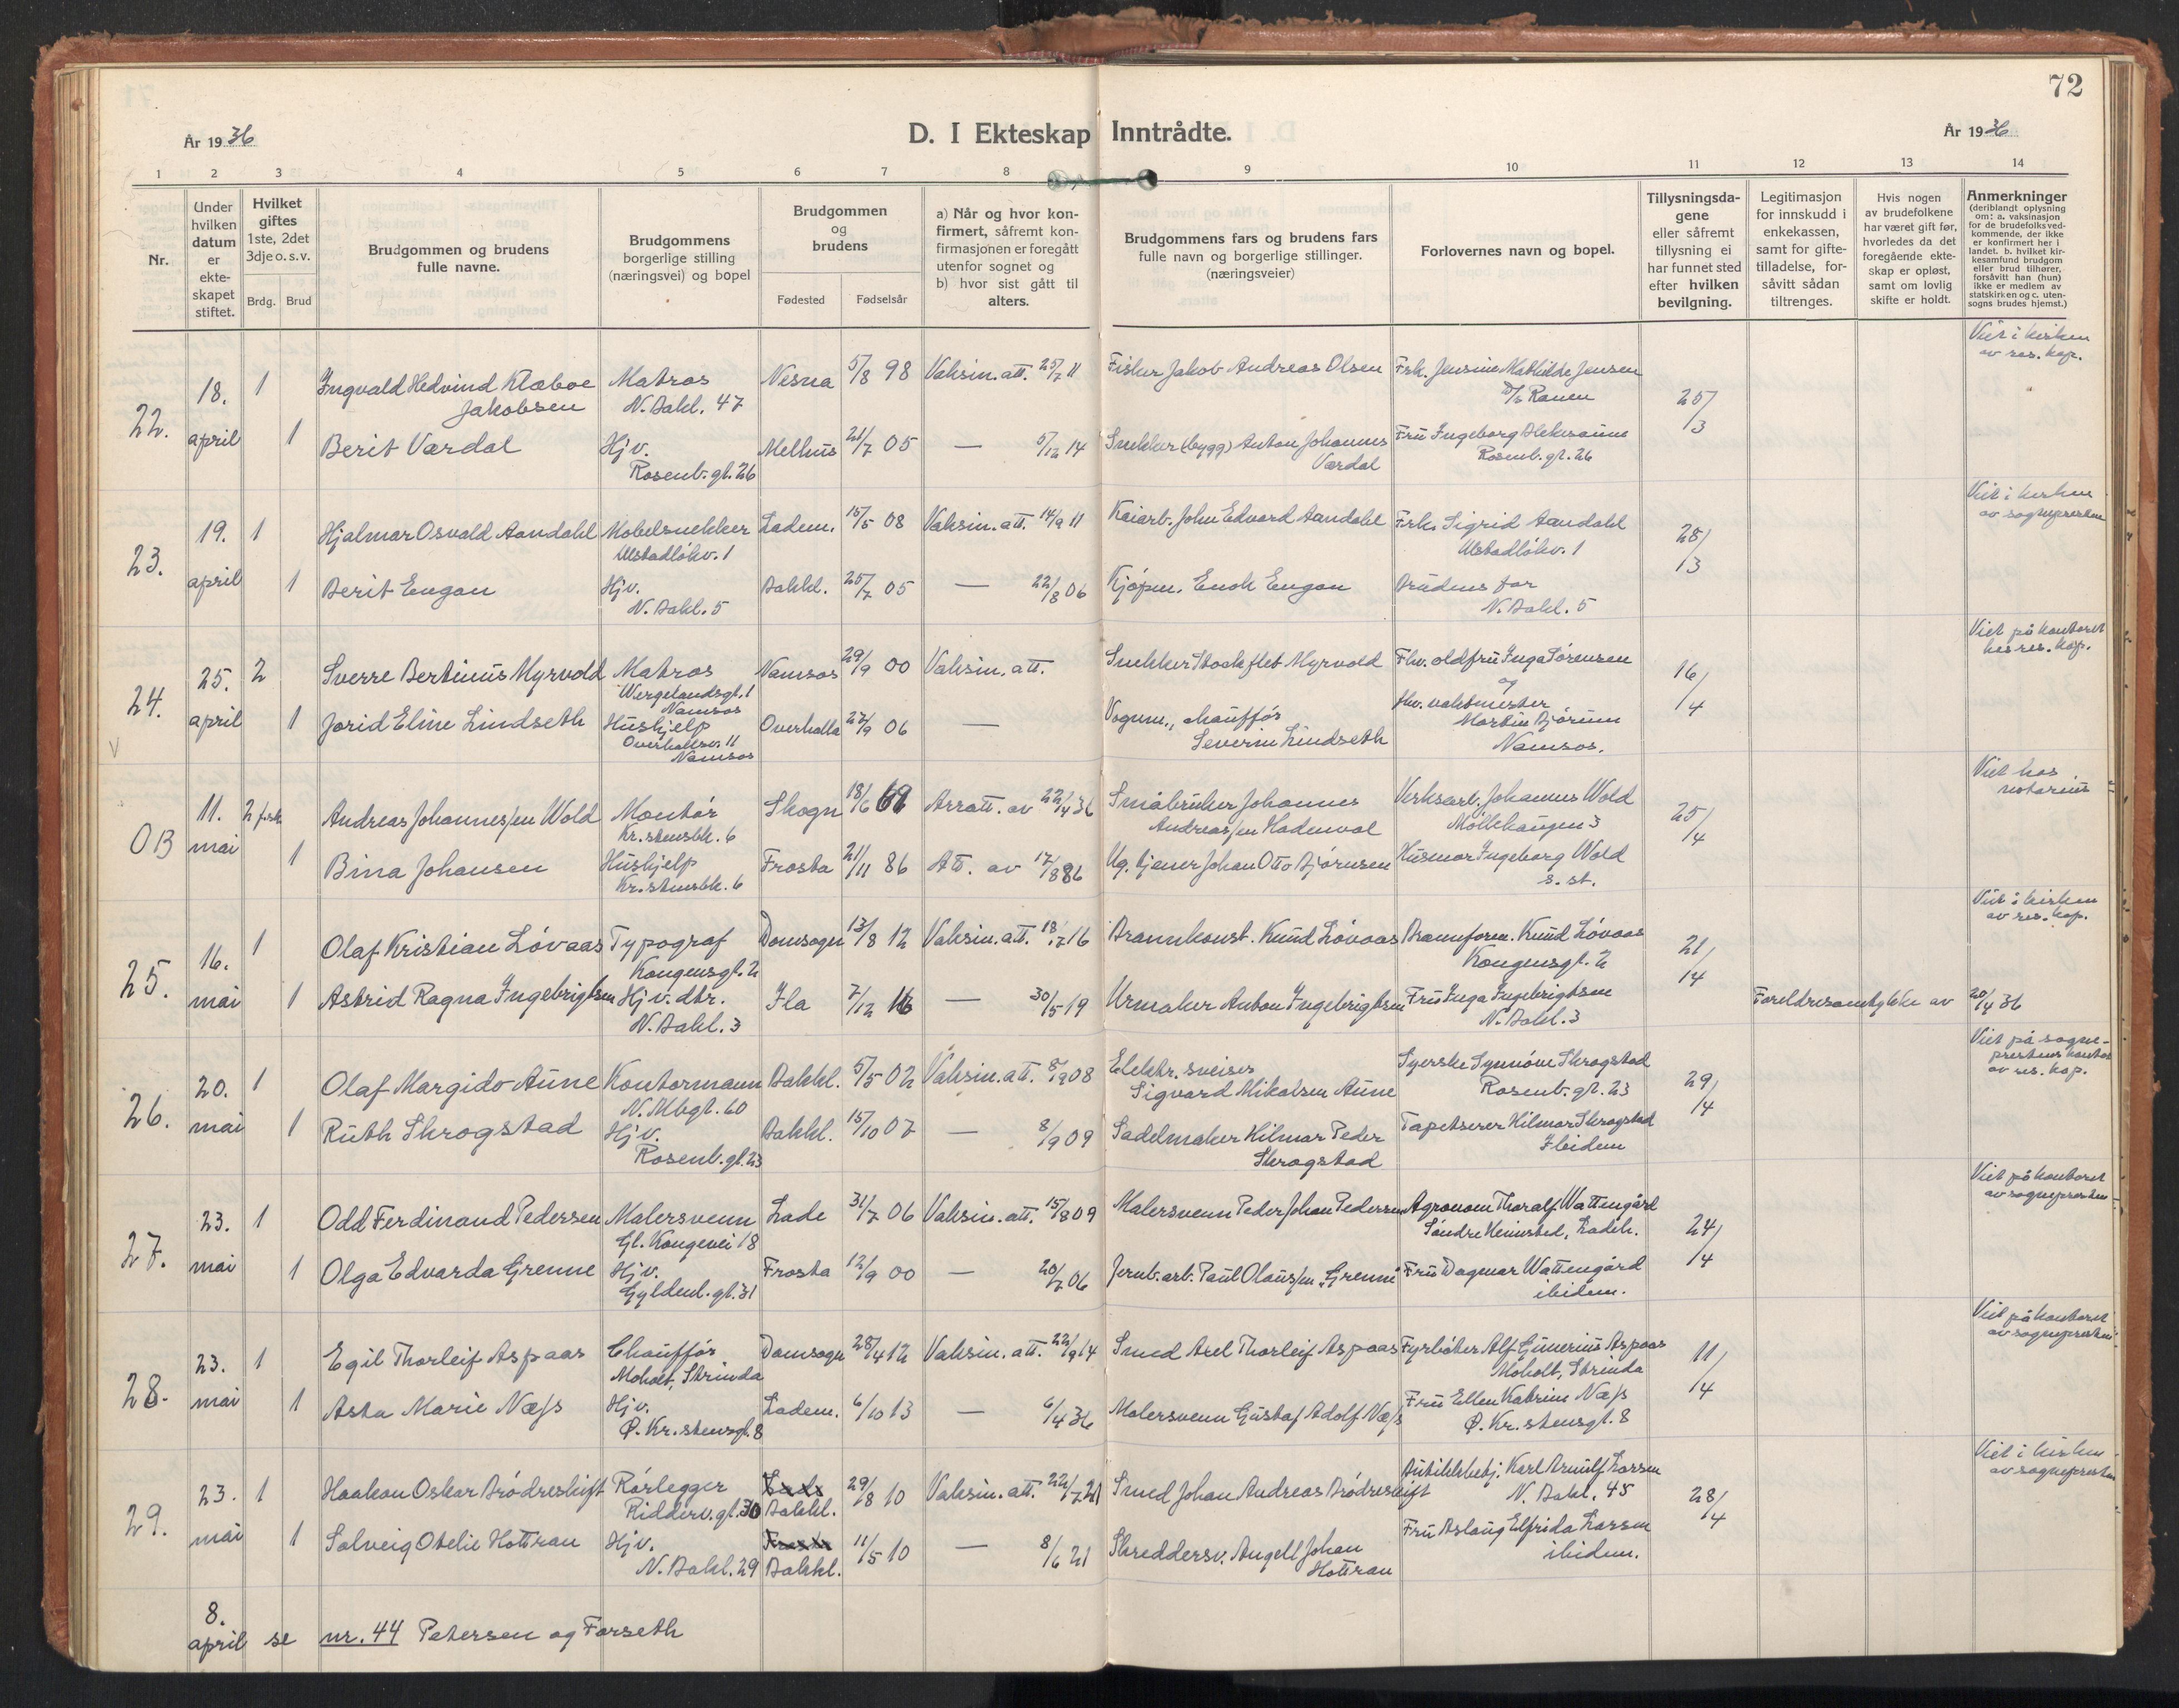 72
År 1936
D. I Ekteskap Inntrådte.
År 1936
1 2 3 4 5 6 7 8 9 10 11 12 13 14
Nr.
Under hvilken datum er ekte-skapet stiftet.
Hvilket giftes 1ste, 2det 3dje o. s. v.
Brdg. Brud
Brudgommen og brudens fulle navne.
Brudgommens borgerlige stilling (næringsvei) og bopel
Brudgommen og brudens
Fødested Fødselsår
a) Når og hvor kon-firmert, såfremt kon-firmasjonen er foregått utenfor sognet og b) hvor sist gått til alters.
Brudgommens fars og brudens fars fulle navn og borgerlige stillinger. (næringsveier)
Forlovernes navn og bopel.
Tillysningsda-gene eller såfremt tillysning ei har funnet sted efter hvilken bevilgning.
Legitimasjon for innskudd i enkekassen, samt for gifte-tilladelse, for-såvitt sådan tiltrenges.
Hvis nogen av brudefolkene har været gift før, hvorledes da det foregående ekte-skap er opløst, samt om lovlig skifte er holdt.
Anmerkninger (deriblandt oplysning om: a. vaksinasjon for de brudefolksved-kommende, der ikke er konfirmert her i landet. b. hvilket kir-kesamfund brudgom eller brud tilhører, forsåvitt han (hun) ikke er medlem av statskirken og c. uten-sogns brudes hjemst.)
22. 18. april 1 Ingvald Hedvind Klæboe Jakobsen Matros N. Bakl. 47 Nesna 5/8 98 Vaksin. att. 25/7 11 Fisker Jakob Andreas Olsen Frk. Jensine Mathilde Jensen D/S Ranen 25/3 Viet i kirken av res. kap.
1 Berit Værdal Hjv. Rosenb. gt. 26 Melhus 21/7 05 — 5/12 14 Snekker (bygg) Anton Johannes Værdal Fru Ingeborg Rosenb. gt. 26
23. 19. april 1 Hjalmar Osvald Aandahl Møbelsnekker Ulstadløkv. 1 Ladem. 15/5 08 Vaksin. att. 14/9 11 Kaiarb. John Edvard Aandahl Frk. Sigrid Aandahl Ulstadløkv. 1 28/3 Viet i kirken av sognepresten
1 Berit Engan Hjv. N. Bakl. 5 Bakkl. 25/7 05 — 22/8 06 Kjøpm. Enok Engan Brudens far N. Bakl. 5
24. 25. april 2 Sverre Bertinius Myrvold Matros Wergelandsgt. 1 Namsos Namsos 29/9 00 Vaksin. att. Snekker Stockflet Myrvold Fhv. oldfru Inga Sørensen og 16/4 Viet på kontoret hos res. kap.
1 Jorid Eline Lindseth Hushjelp Overhallsv. 11 Namsos Overhalla 27/9 06 — Vognm., chauffør Severin Lindseth fhv. vaktmester Martin Bjørum Namsos.
OB 11. mai 2 frsk Andreas Johannessen Wold Montør Kr.stensbk. 6 Skogn 18/6 69 Arratt. av 22/4 36 Småbruker Johannes Andreassen Verksarb. Johannes Wold Møllehaugen 3 25/4 Viet hos notarius
1 Bina Johansen Hushjelp Kr.stensbk. 6 Frosta 21/11 86 Att. av 17/8 86 Ug. tjener Johan Otto Bjørnsen Husmor Ingeborg Wold s. st.
25. 16. mai 1 Olaf Kristian Løvaas Typograf Kongensgt. 2 Domsogn 13/8 12 Vaksin. att. 18/7 16 Brannkonst. Knud Løvaas Brannform. Knud Løvaas Kongensgt. 2 21/14 Viet i kirken av res. kap.
1 Astrid Ragna Ingebrigtsen Hjv. dtr. N. Bakl. 3 Ila 7/12 16 — 30/5 19 Urmaker Anton Ingebrigtsen Fru Inga Ingebrigtsen N. Bakl. 3 Foreldresamtykke av 20/4 36
26. 20. mai 1 Olaf Margido Aune Kontormann N. Mbgt. 60 Bakkl. 5/5 02 Vaksin. att. 8/9 08 Elektr. sveiser Sigvard Mikalsen Aune Syerske Synnøve Skrogstad Rosenb. gt. 23 29/4 Viet på sogne-prestens kontor av res. kap.
1 Ruth Skrogstad Hjv. Rosenb. gt. 23 Bakkl. 15/10 07 — 8/9 09 Sadelmaker Hilmar Peder Skrogstad Tapetserer Hilmar Skrogstad Ibidem
27. 23. mai 1 Odd Ferdinand Pedersen Malersvenn Gl. Kongevei 18 Lade 31/7 06 Vaksin. att. 15/8 09 Malersvenn Peder Johan Pedersen Agronom Thoralf Wattengård Søndre Heimsted, Ladeh. 24/4 Viet på kontoret av sognepresten
1 Olga Edvarda Grenne Hjv. Gyldenl. gt. 31 Frosta 12/9 00 — 20/7 06 Jernb. arb. Paul Olaussen Grenne Fru Dagmar Wattengård ibidem.
28. 23. mai 1 Egil Thorleif Aspaas Chauffør Moholt, Strinda Domsogn 28/4 12 Vaksin. att. 22/9 14 Smed Axel Thorleif Aspaas Fyrbøter Alf Gunerius Aspaas Moholt, Strinda 11/4 Viet på kontoret av sognepresten
1 Asta Marie Næss Hjv. Ø. Kr.stensgt. 8 Ladem. 6/10 13 — 6/4 36 Malersvenn Gustaf Adolf Næss Fru Ellen Katrine Næss Ø. Kr.stensgt. 8
29. 23. mai 1 Haakon Oskar Brødreskift Rørlegger Ridderv. gt. 30 Bakkl. 29/8 10 Vaksin. att. 22/7 21 Smed Johan Andreas Brødreskift Butikkbetj. Karl Arnulf Larsen N. Bakl. 45 28/4 Viet i kirken av sognepresten
1 Solveig Otelie Hottran Hjv. N. Bakl. 29 Bakkl. 11/5 10 — 8/6 21 Skreddersv. Angell Johan Hottran Fru Aslaug Elfrida Larsen ibidem.
8. april se nr. 44 Petersen og Forseth